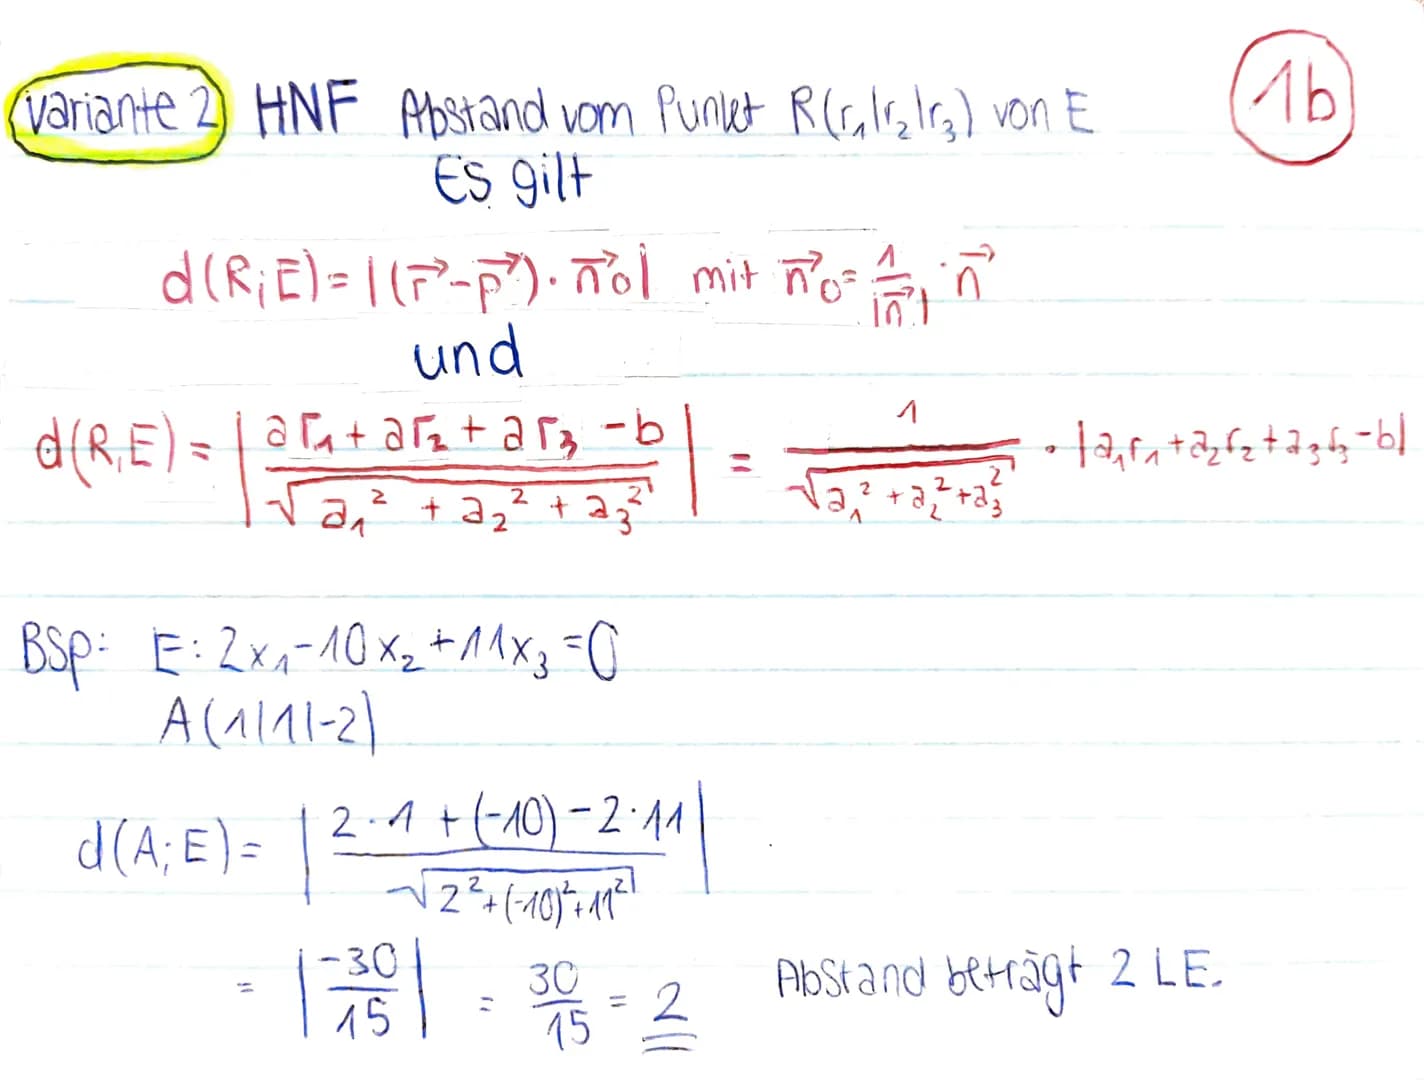 Variante 2 HNF Abstand vom Punkt R(r₁|r₂|r₃) von E
1b
Es gilt
d(R;E)=|(r⃗-p⃗)·n⃗₀| mit n⃗₀= 1/|n⃗| · n⃗
und
d(R,E) = |(ar₁ + ar₂ + ar₃ - b)/√(a₁² + a₂² + a₃²)| = 1/√(a₁² + a₂² + a₃²) · |a₁r₁+a₂r₂+a₃r₃-b|
BSP: E: 2x₁-10x₂+11x₃=0
A(1|1|-2)
d(A;E)= |(2·1 + (-10) - 2·11)/√(2²+(-10)²+11²)|
= |-30/15| = 30/15 = 2 Abstand beträgt 2 LE.